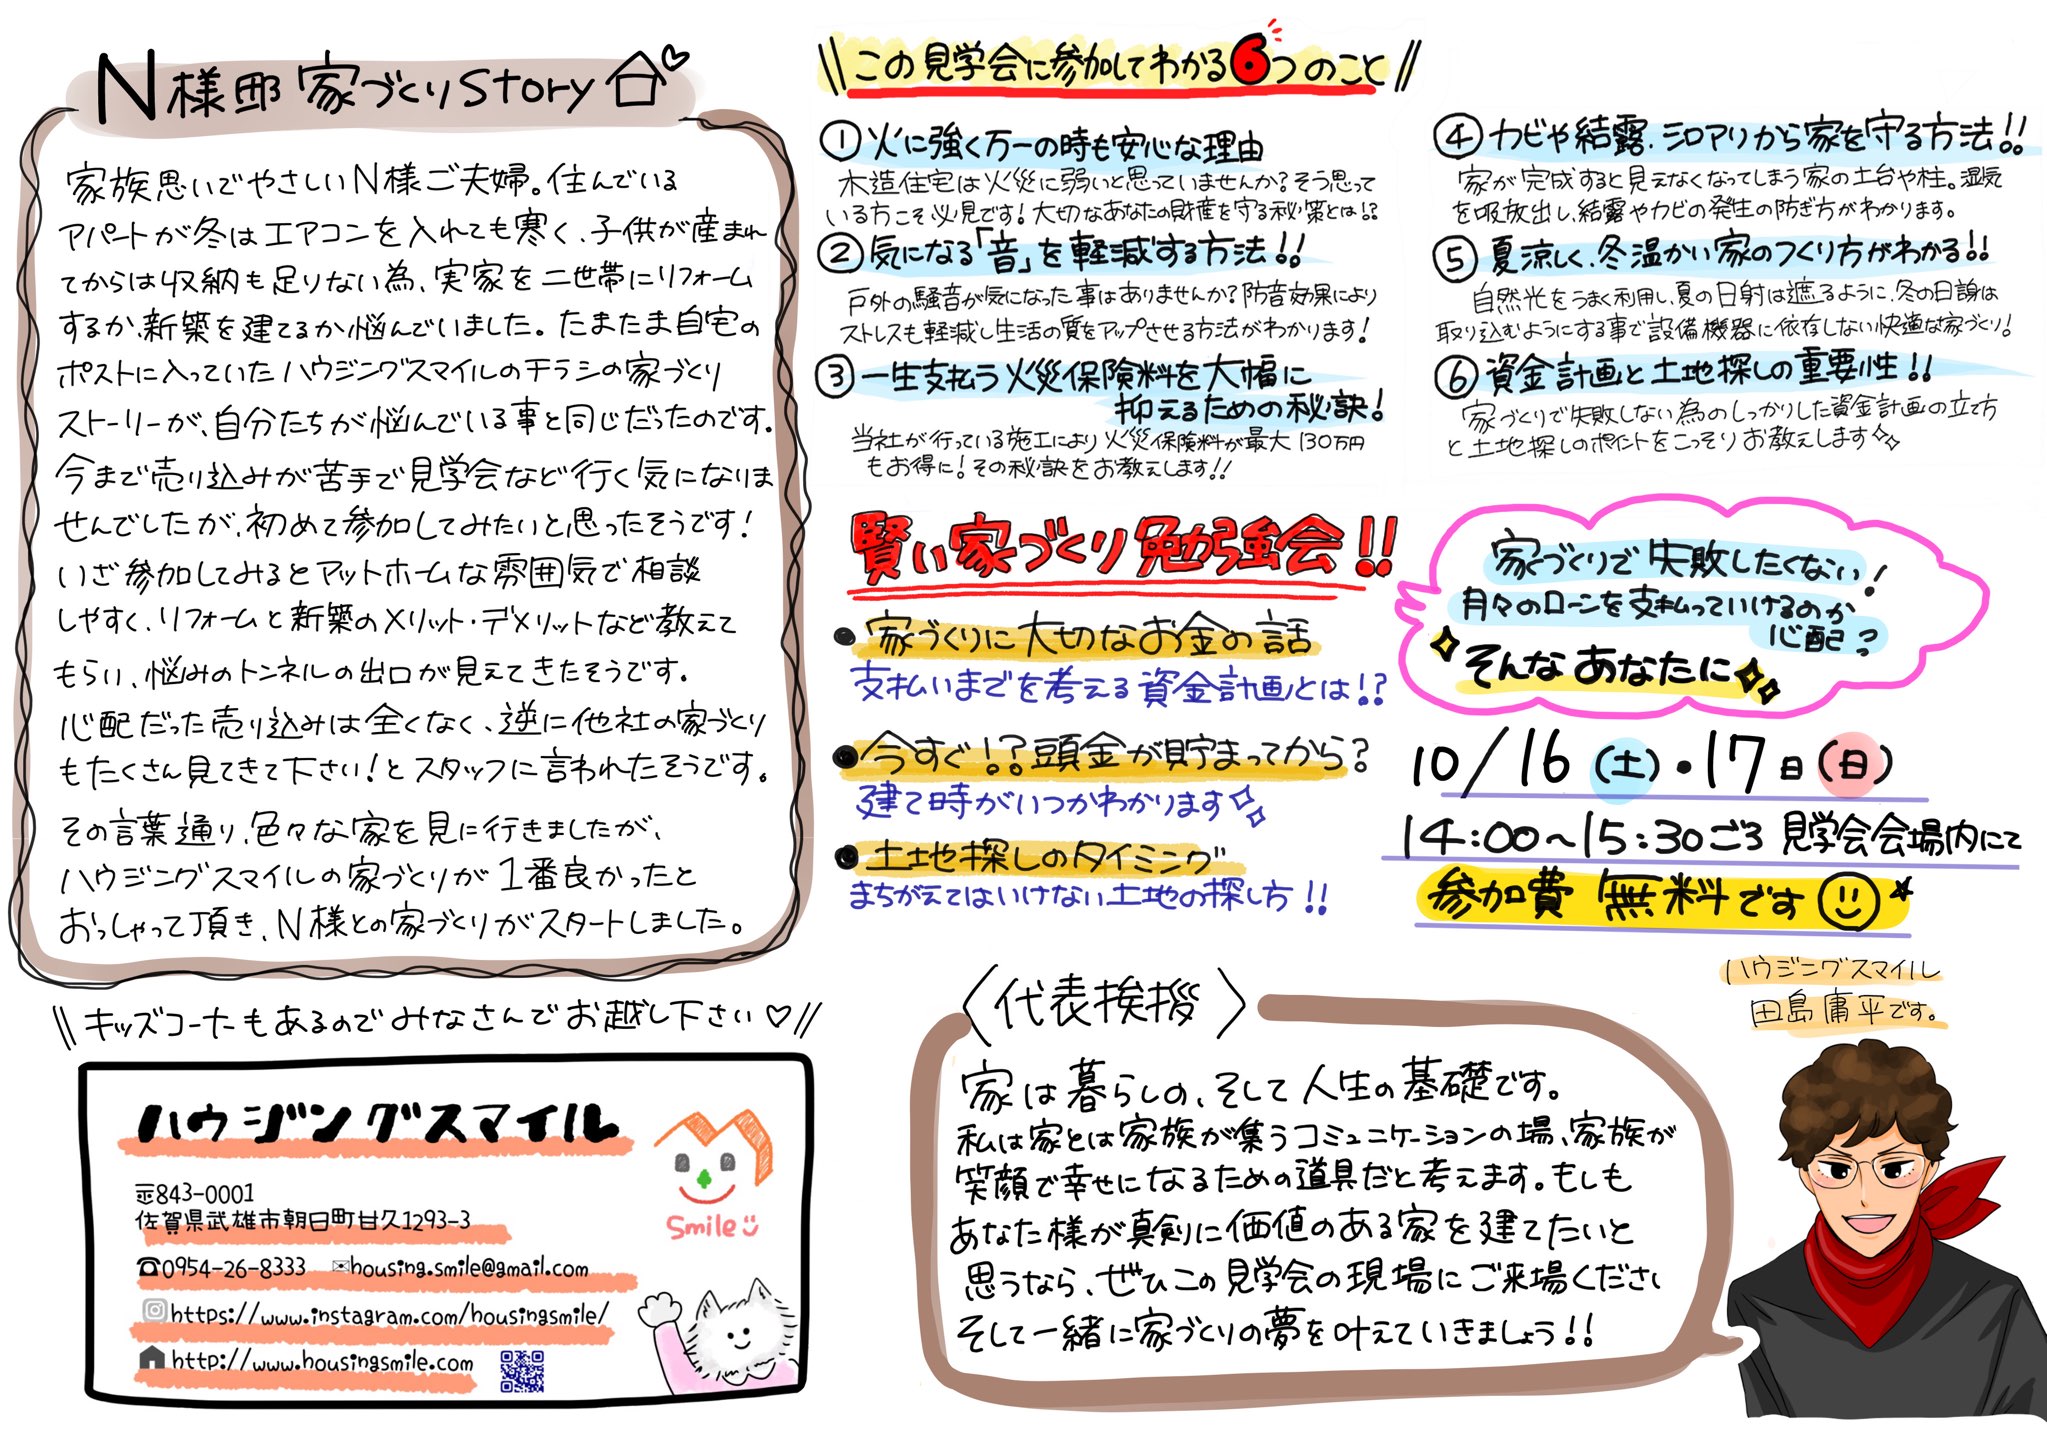 N様邸 家づくりStory
家族思いでやさしいN様ご夫婦。住んでいる
アパートが冬はエアコンを入れても寒く、子供が産まれ
てからは収納も足りない為、実家を二世帯にリフォーム
するか、新築を建てるか悩んでいました。たまたま自宅の
ポストに入っていたハウジングスマイルのチラシの家づくり
ストーリーが、自分たちが悩んでいる事と同じだったのです。
今まで売り込みが苦手で見学会など行く気になりま
せんでしたが、初めて参加してみたいと思ったそうです!
いざ参加してみるとアットホームな雰囲気で相談
しやすく、リフォームと新築のメリット・デメリットなど教えて
もらい、悩みのトンネルの出口が見えてきたそうです。
心配だった売り込みは全くなく、逆に他社の家づくり
もたくさん見てきて下さい!とスタッフに言われたそうです。
その言葉通り、色々な家を見に行きましたが、
ハウジングスマイルの家づくりが1番良かったと
おっしゃって頂き、N様との家づくりがスタートしました。
\\キッズコーナーもあるのでみなさんでお越し下さい♡//
ハウジングスマイル
〒843-0001
佐賀県武雄市朝日町甘久1293-3
☎0954-26-8333 ✉housing.smile@gmail.com
https://www.instagram.com/housingsmile/
http://www.housingsmile.com
Smile
\\この見学会に参加してわかる6つのこと//
①火に強く万一の時も安心な理由
木造住宅は火災に弱いと思っていませんか?そう思って
いる方こそ必見です!大切なあなたの財産を守る秘策とは!?
②気になる「音」を軽減する方法!!
戸外の騒音が気になった事はありませんか?防音効果により
ストレスも軽減し生活の質をアップさせる方法がわかります!
③一生支払う火災保険料を大幅に
抑えるための秘訣!
当社が行っている施工により火災保険料が最大130万円
もお得に!その秘訣をお教えします!!
④カビや結露、シロアリから家を守る方法!!
家が完成すると見えなくなってしまう家の土台や柱。湿気
を吸放出し、結露やカビの発生の防ぎ方がわかります。
⑤夏涼しく、冬温かい家のつくり方がわかる!!
自然光をうまく利用し、夏の日射は遮るように、冬の日射は
取り込むようにする事で設備機器に依存しない快適な家づくり!
⑥資金計画と土地探しの重要性!!
家づくりで失敗しない為のしっかりした資金計画の立て方
と土地探しのポイントをこっそりお教えします✨
賢い家づくり勉強会!!
●家づくりに大切なお金の話
支払いまでを考える資金計画とは!?
●今すぐ!?頭金が貯まってから?
建て時がいつかわかります✨
●土地探しのタイミング
まちがえてはいけない土地の探し方!!
家づくりで失敗したくない!
月々のローンを支払っていけるのか
心配?
そんなあなたに
10/16(土)・17日(日)
14:00~15:30ごろ 見学会会場内にて
参加費 無料です
〈代表挨拶〉
家は暮らしの、そして人生の基礎です。
私は家とは家族が集うコミュニケーションの場、家族が
笑顔で幸せになるための道具だと考えます。もしも
あなた様が真剣に価値のある家を建てたいと
思うなら、ぜひこの見学会の現場にご来場ください
そして一緒に家づくりの夢を叶えていきましょう!!
ハウジングスマイル
田島庸平です。